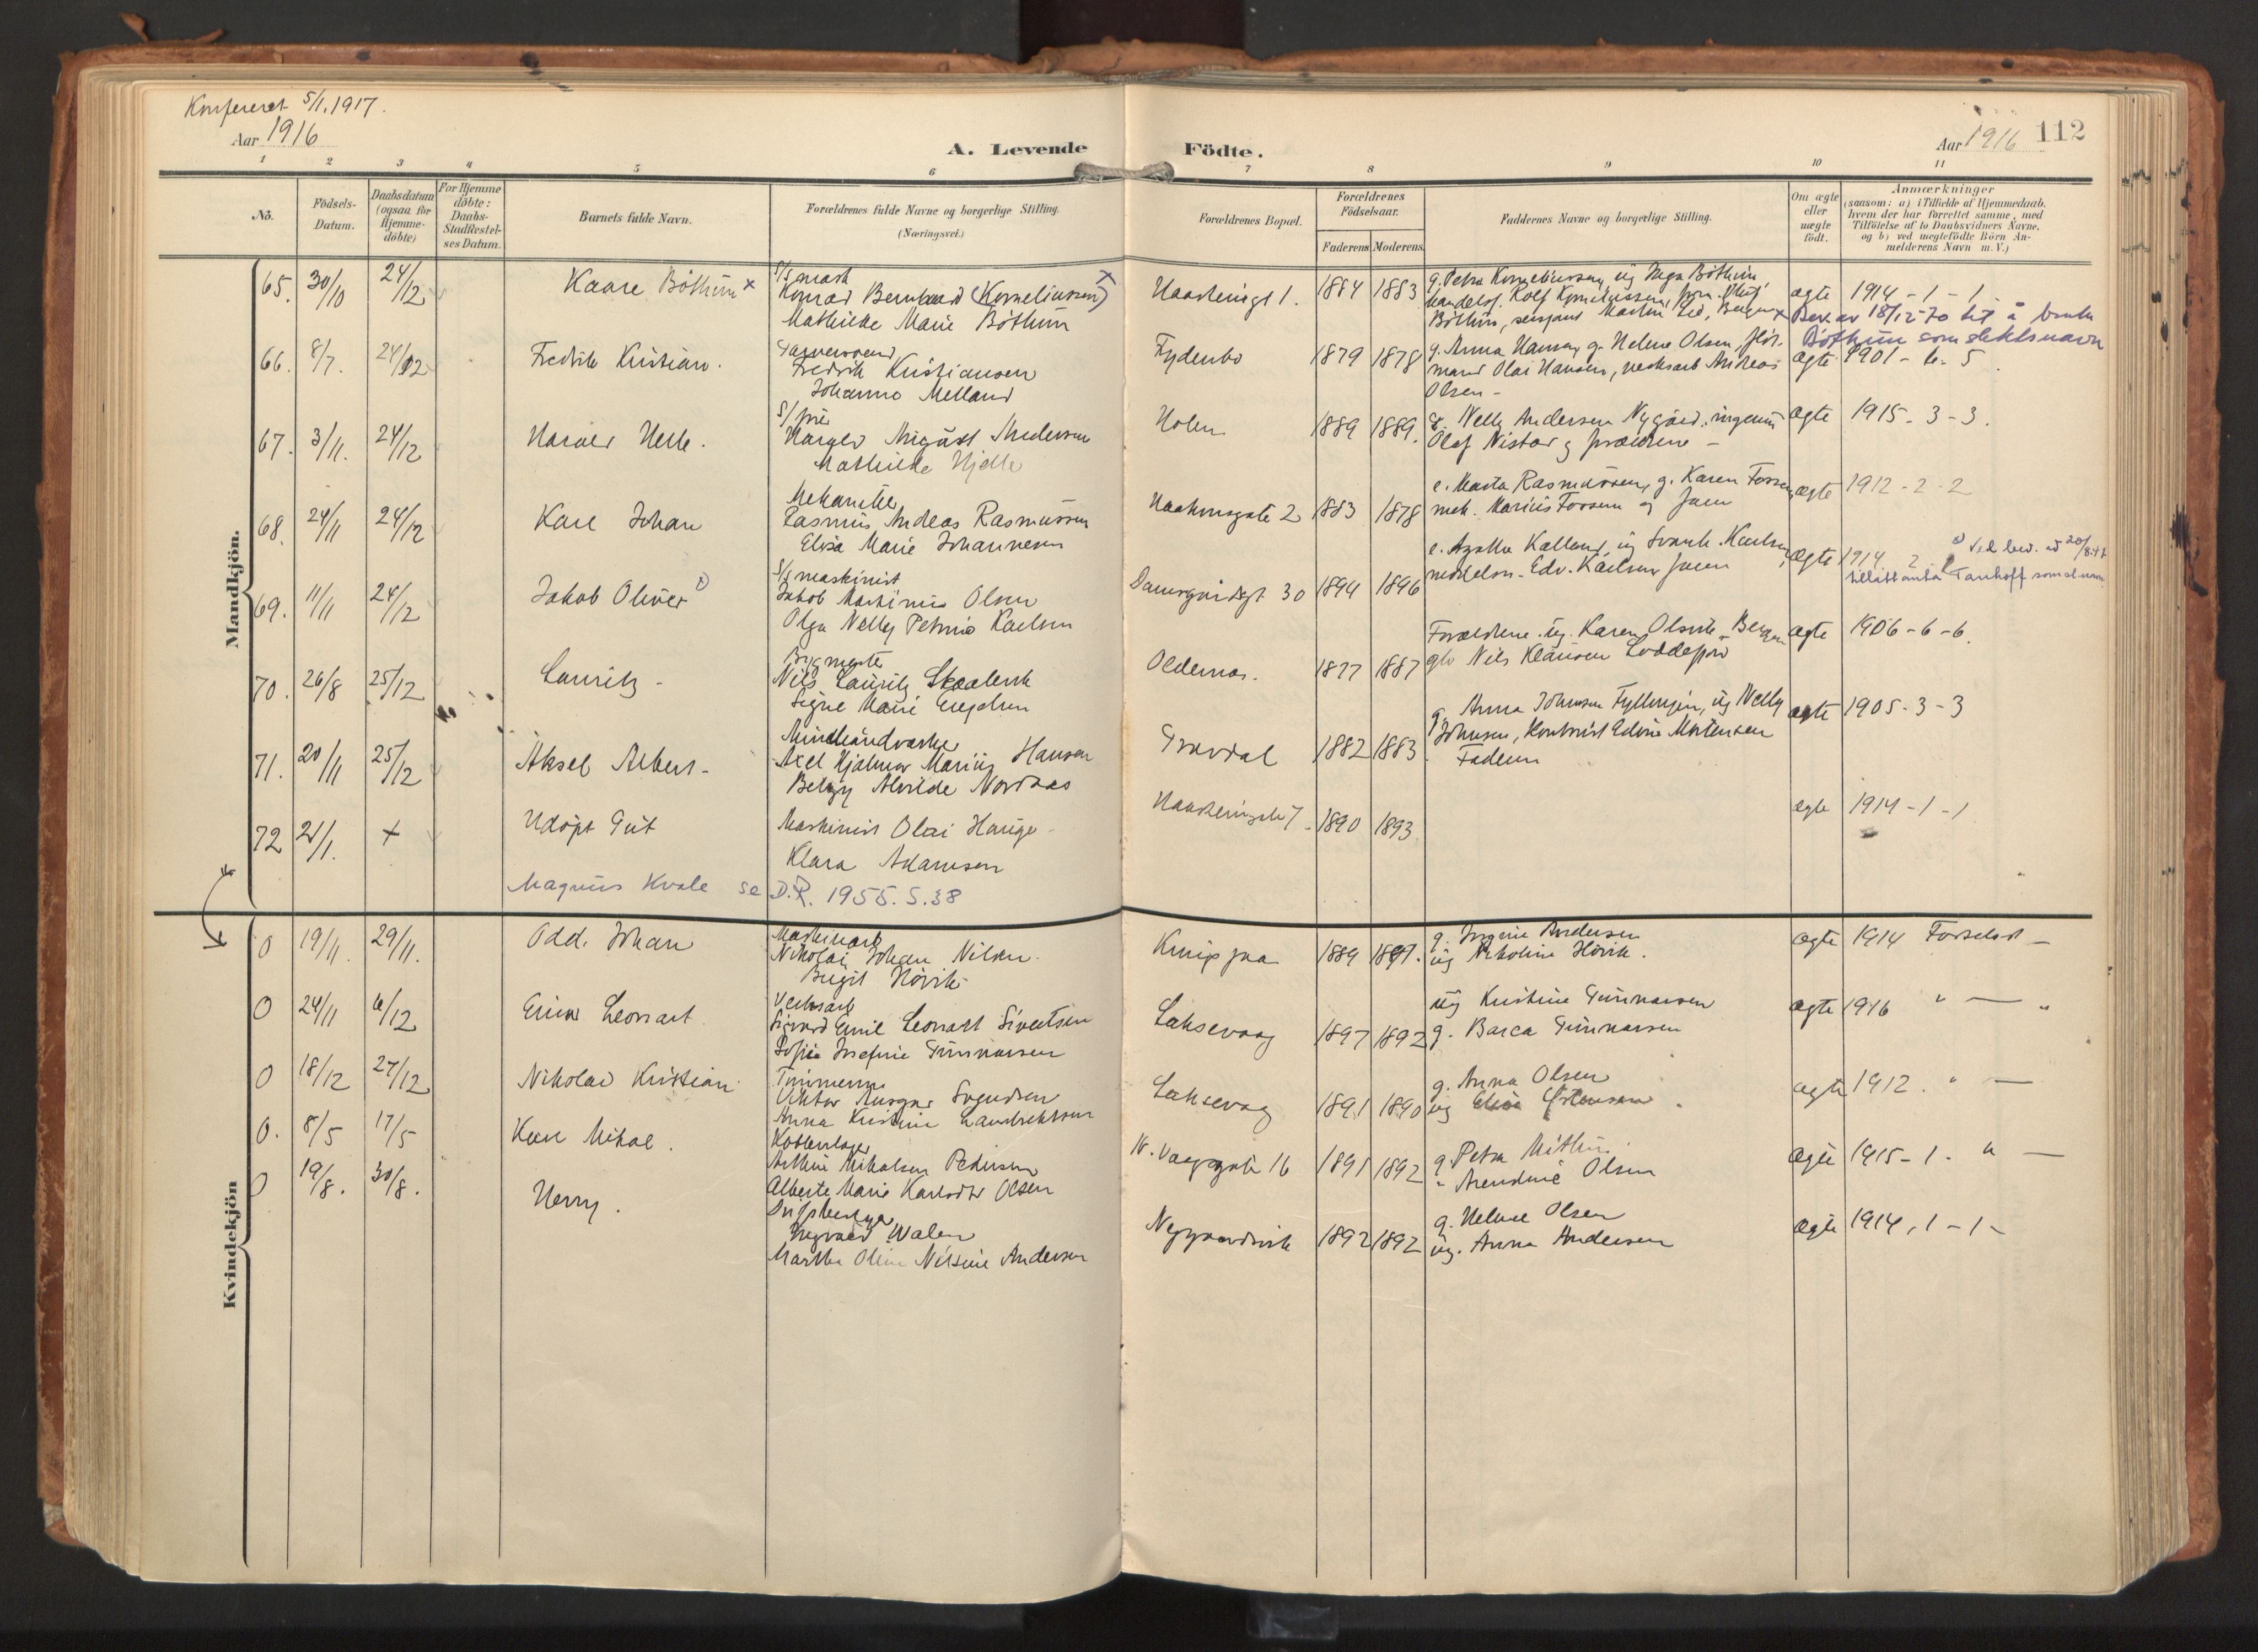 Konfereret 5/1.1917.
Aar 1916
A. Levende Födte.
Aar 1916 112
1 2 3 4 5 6 7 8 9 10 11
Nö.
Födsels-Datum.
Daabsdatum (ogsaa for Hjemme-döbte)
For Hjemme döbte: Daabs-Stadfæstel-ses Datum.
Barnets fulde Navn.
Forældrenes fulde Navne og borgerlige Stilling.
(Næringsvei.)
Forældrenes Bopæl.
Forældrenes Födselsaar.
Faderens Moderens
Faddernes Navne og borgerlige Stilling.
Om ægte eller uægte födt.
Anmærkninger
(saasom: a) i Tilfælde af Hjemmedaab, hvem der har forrettet samme, med Tilföielse af to Daabsvidners Navne, og b) ved uægtefödte Börn An-melderens Navn m. V.)
Mandkjön.
65. 30/10 24/12 Kaare Böthun x
Konrad Bernhard (Korneliussen) x
Mathilde Marie Böthun
1884 1883
g. Petra Korneliussen, ug Inga Böthun,
Rolf Korneliussen
Böthun, sersjant Martin
ægte 1914 - 1 - 1
x Bev. av 18/12-70 til å bruke
Böthun som slektsnavn
66. 8/7. 24/12 Fredrik Kristian.
Fredrik Kristiansen
Johanna Melland
Fydenbo 1879 1878
g. Anna Hansen, g. Helene Olsen
Olai Hansen, verksarb Andreas
Olsen -
ægte 1901 - 6 - 5
67. 3/11. 24/12
August Andersen
Mathilde Hjelle
Holen 1889 1889.
Nelly Andersen Nygård
Olaf Nistad og forældrene -
ægte 1915 - 3 - 3.
68. 24/11 24/12 Karl Johan
Mekaniker
Rasmus Andreas Rasmussen
Elisa Marie Johannesen
1883 1878
e. Marta Rasmussen, g. Karen Fossen,
mek. Marius Fossen og faren
ægte 1912 - 2 - 2
69. 11/11 24/12 Jakob Oliver
S/s maskinist
Jakob Martinius Olsen
Olga Nelly Petrine Karlsen
Damsgårdsgt 30 1894 1896
Edv. Karlsen faren
ægte 1914. 2
70. 26/8 25/12 Lauritz -
Bygmester
Nils Lauritz Skaalevik
Signe Marie Engelsen
Oldernes. 1877 1887
Forældrene. ug. Karen Olsvik, Bergen
Nils Klausen Loddefjord
ægte 1906 - 6 - 6.
71. 20/11 25/12 Aksel Albert -
Axel Hjalmar Marius Hansen
Betzy Alvilde Nordaas
Gravdal 1882 1883
g. Anna Johnsen Fyllingen, ug Nelly
Johnsen, kontorist Edvin Mortensen
Faderen
ægte 1905 - 3 - 3
72 21/1. + Udöpt Gut
Maskinist Olai Hauge -
Klara Adamsen
1890 1893
ægte 1914 - 1 - 1
Magnus Kvale se D.R. 1955. S. 38
Kvindekjön
0 19/11. 29/11. Odd. Johan
Maskinarb
Nikolai Johan Nilsen.
Birgit Hövik
1889 1891.
g. Ingrine Andersen
ug Nikoline Hövik.
ægte 1914
0 24/11 6/12 Einar Leonart
Verksarb
Sigvard Emil Leonart Sivertsen
Sofie Josefine Gunnarsen
Laksevaag 1897 1892
ug Kristine Gunnarsen
g. Barca Gunnarsen
ægte 1916 " — "
0 18/12 27/12 Nikolai Kristian
Viktor Ansgar Svendsen
Anna Kristine Lambrektsen
Laksevag 1891 1890
g. Anna Olsen
ug Elise
ægte 1912. " —
0. 8/5 17/5 Karl Mikal.
Arthur Mikalsen Pedersen
Alberte Marie Karlsdtr Olsen
N. Vaagsgate 16 1891 1892
g. Petra
" Arendine Olsen
ægte 1915 - 1. " —
0 19/8. 30/8. Herry.
Ingvald Walen
Martha Oline Nilsine Andersen
Nygaardsvik 1892 1892
g. Helene Olsen
ug. Anna Andersen
ægte 1914, 1 - 1 -